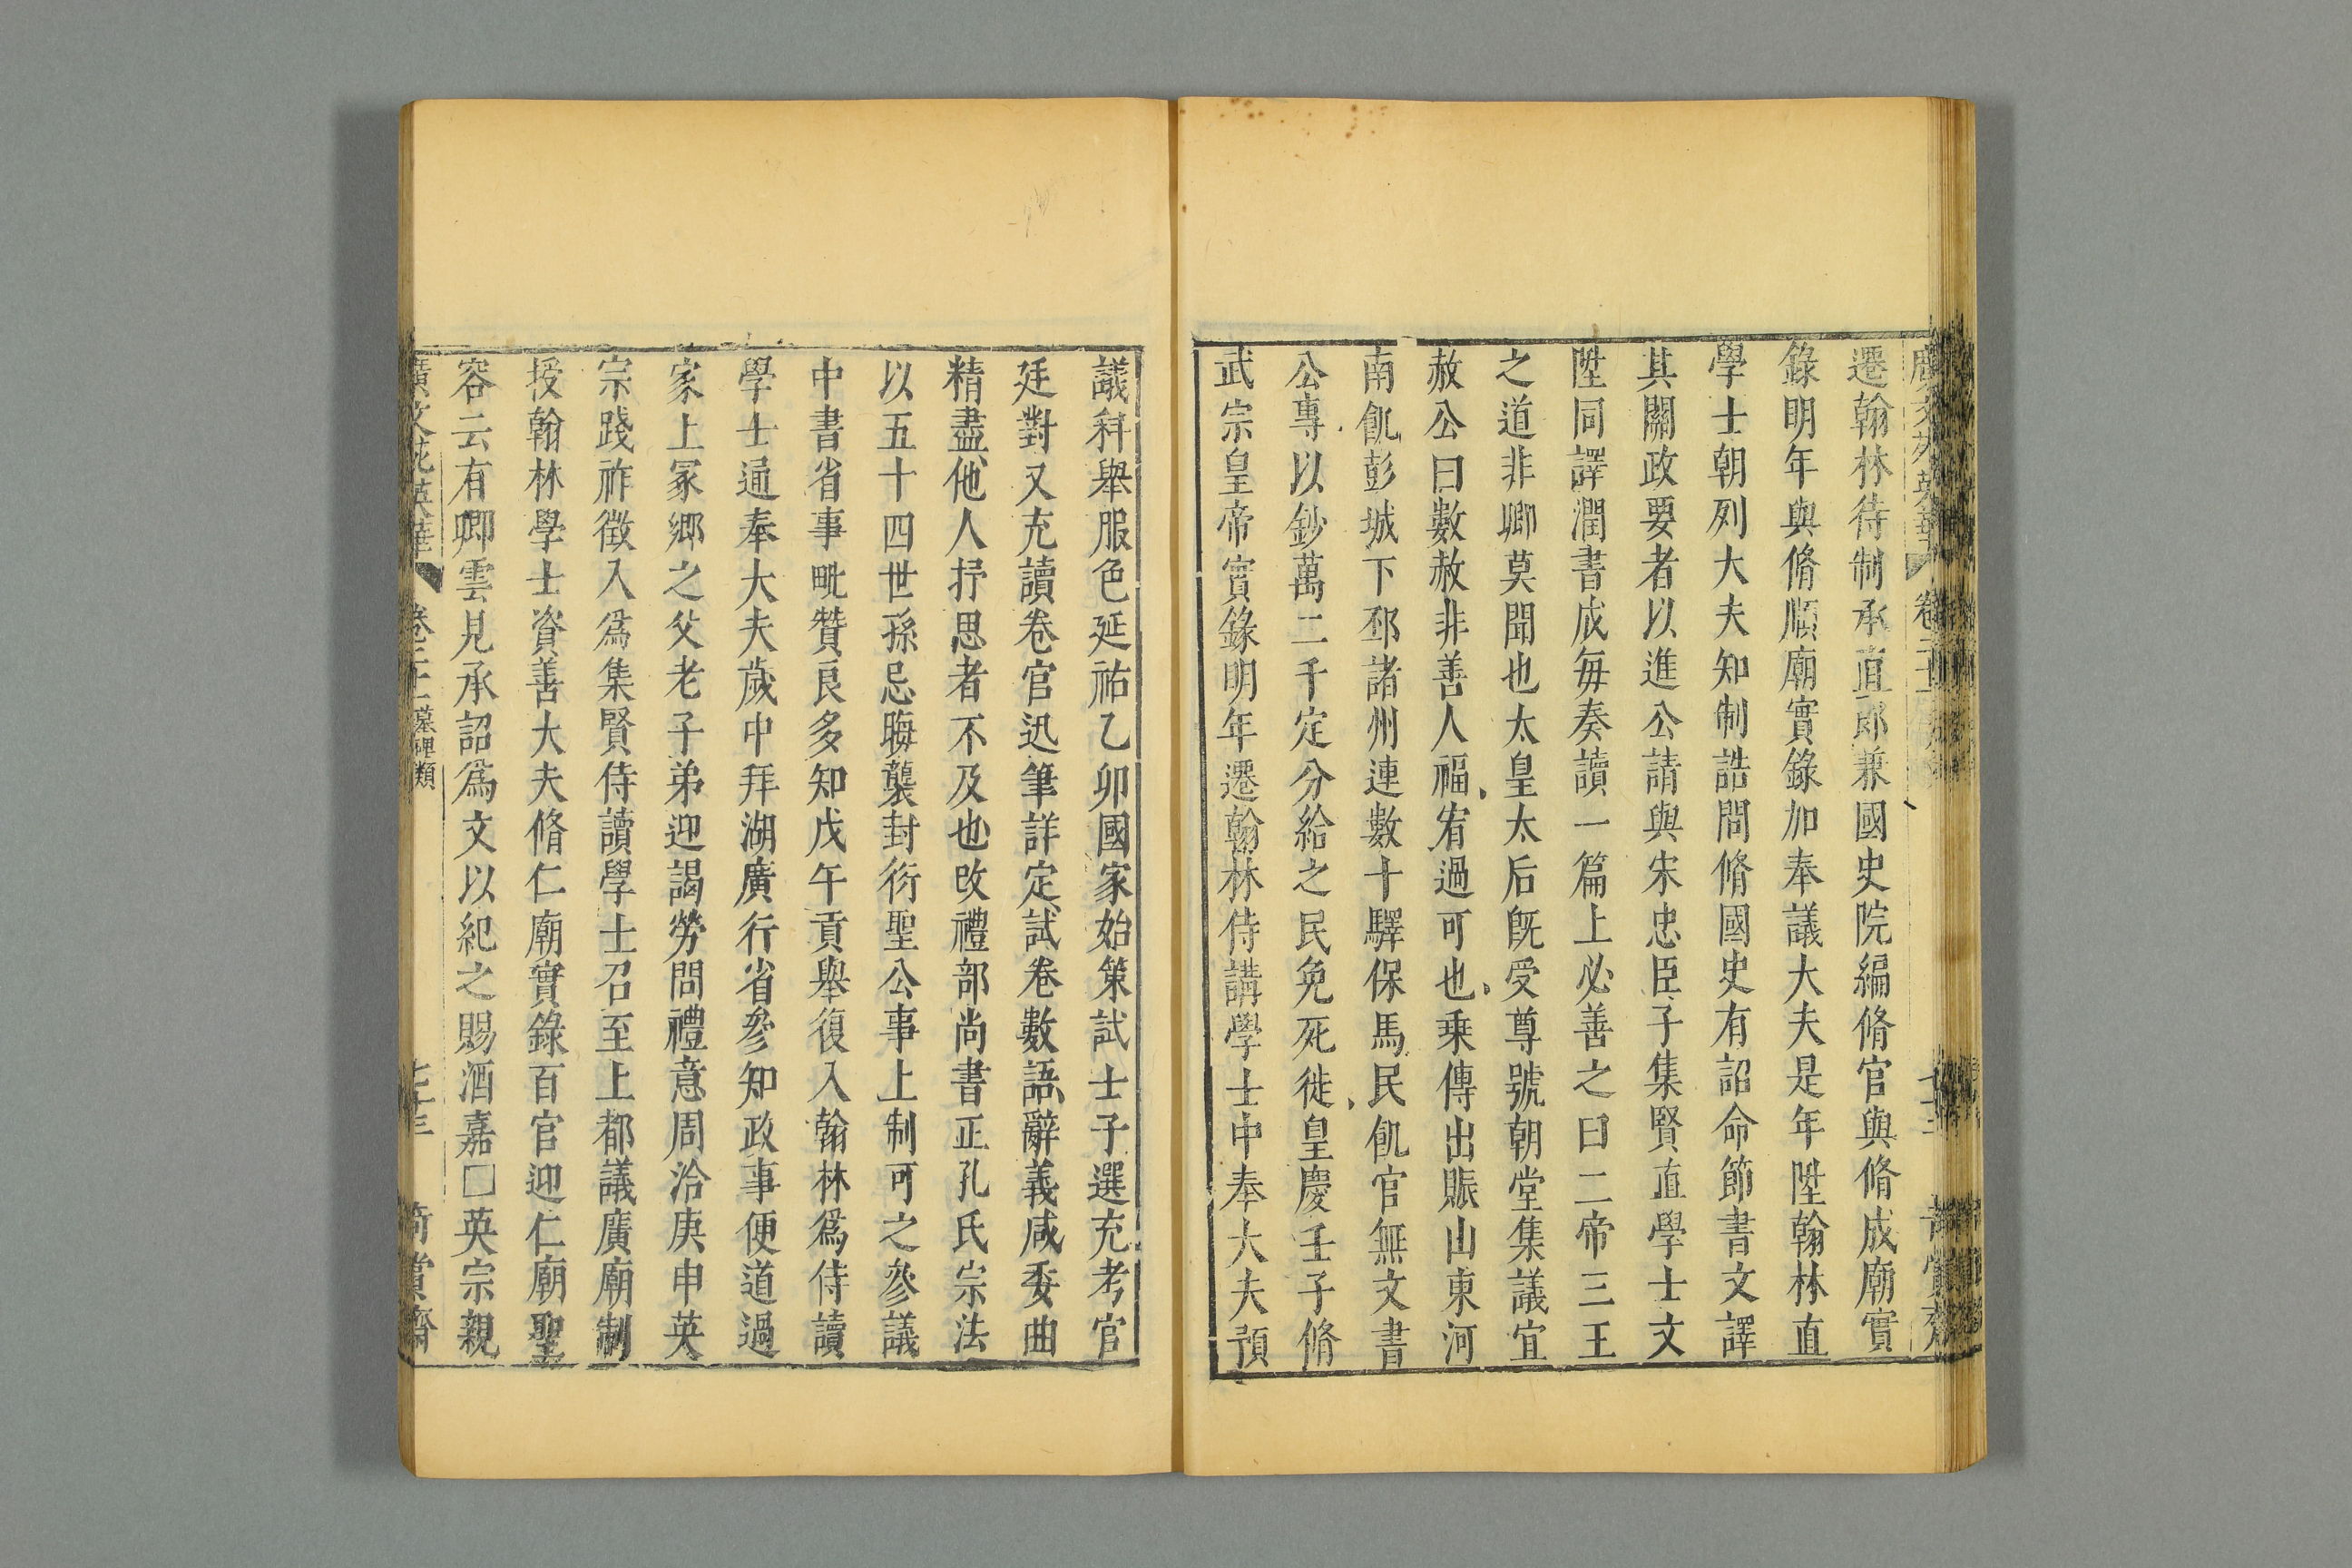 遷翰林待制承直郎兼國史院編脩官與脩成廟實
錄明年與脩順廟實錄加奉議大夫是年陞翰林直
學士朝列大夫知制誥同脩國史有詔命節書文譯
其關政要者以進公請與宋忠臣子集賢直學士文
陞同譯潤書成每奏讀一篇上必善之曰二帝三王
之道非卿莫聞也太皇太后旣受尊號朝堂集議宜
赦公曰數赦非善人福宥過可也乗傳出賑山東河
南飢彭城下邳諸州連數十驛保馬民飢官無文書
公專以鈔萬二千定分給之民免死徙皇慶壬子脩
武宗皇帝實錄明年遷翰林侍講學士中奉大夫預
議科舉服色延祐乙卯國家始策試士子選充考官
廷對又充讀卷官迅筆詳定試卷數語辭義咸委曲
精盡他人抒思者不及也改禮部尚書正孔氏宗法
以五十四世孫思晦襲封衍聖公事上制可之參議
中書省事毗贊良多知戊午貢舉復入翰林爲侍讀
學士通奉大夫歲中拜湖廣行省參知政事便道過
家上冢鄉之父老子弟迎謁勞問禮意周洽庚申英
宗踐祚徵入爲集賢侍讀學士召至上都議廣廟制
授翰林學士資善大夫脩仁廟實錄百官迎仁廟聖
容云有卿雲見承詔爲文以紀之賜酒嘉□英宗親
廣文苑英華 卷三十一 墓碑類